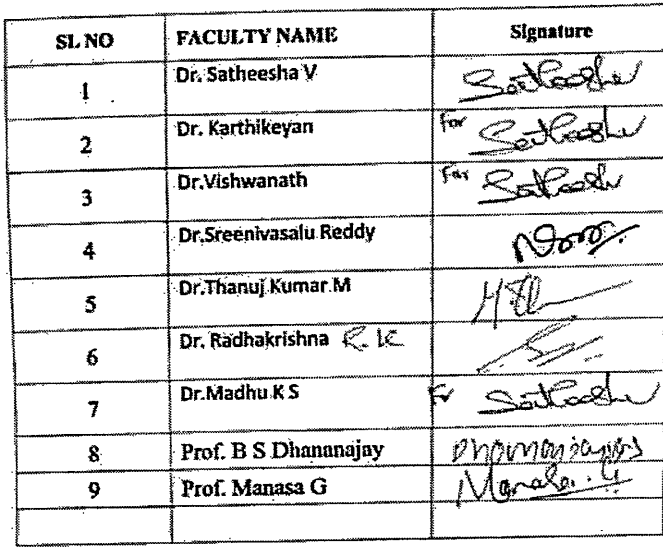 SL NO FACULTY NAME Signature
1 Dr. Satheesha V Satheesha
2 Dr. Karthikeyan For Satheesha
3 Dr.Vishwanath For Satheesha
4 Dr.Sreenivasalu Reddy
5 Dr.Thanuj Kumar M
6 Dr. Radhakrishna R.K
7 Dr.Madhu K S Fr Satheesha
8 Prof. B S Dhananajay
9 Prof. Manasa G Manasa. G